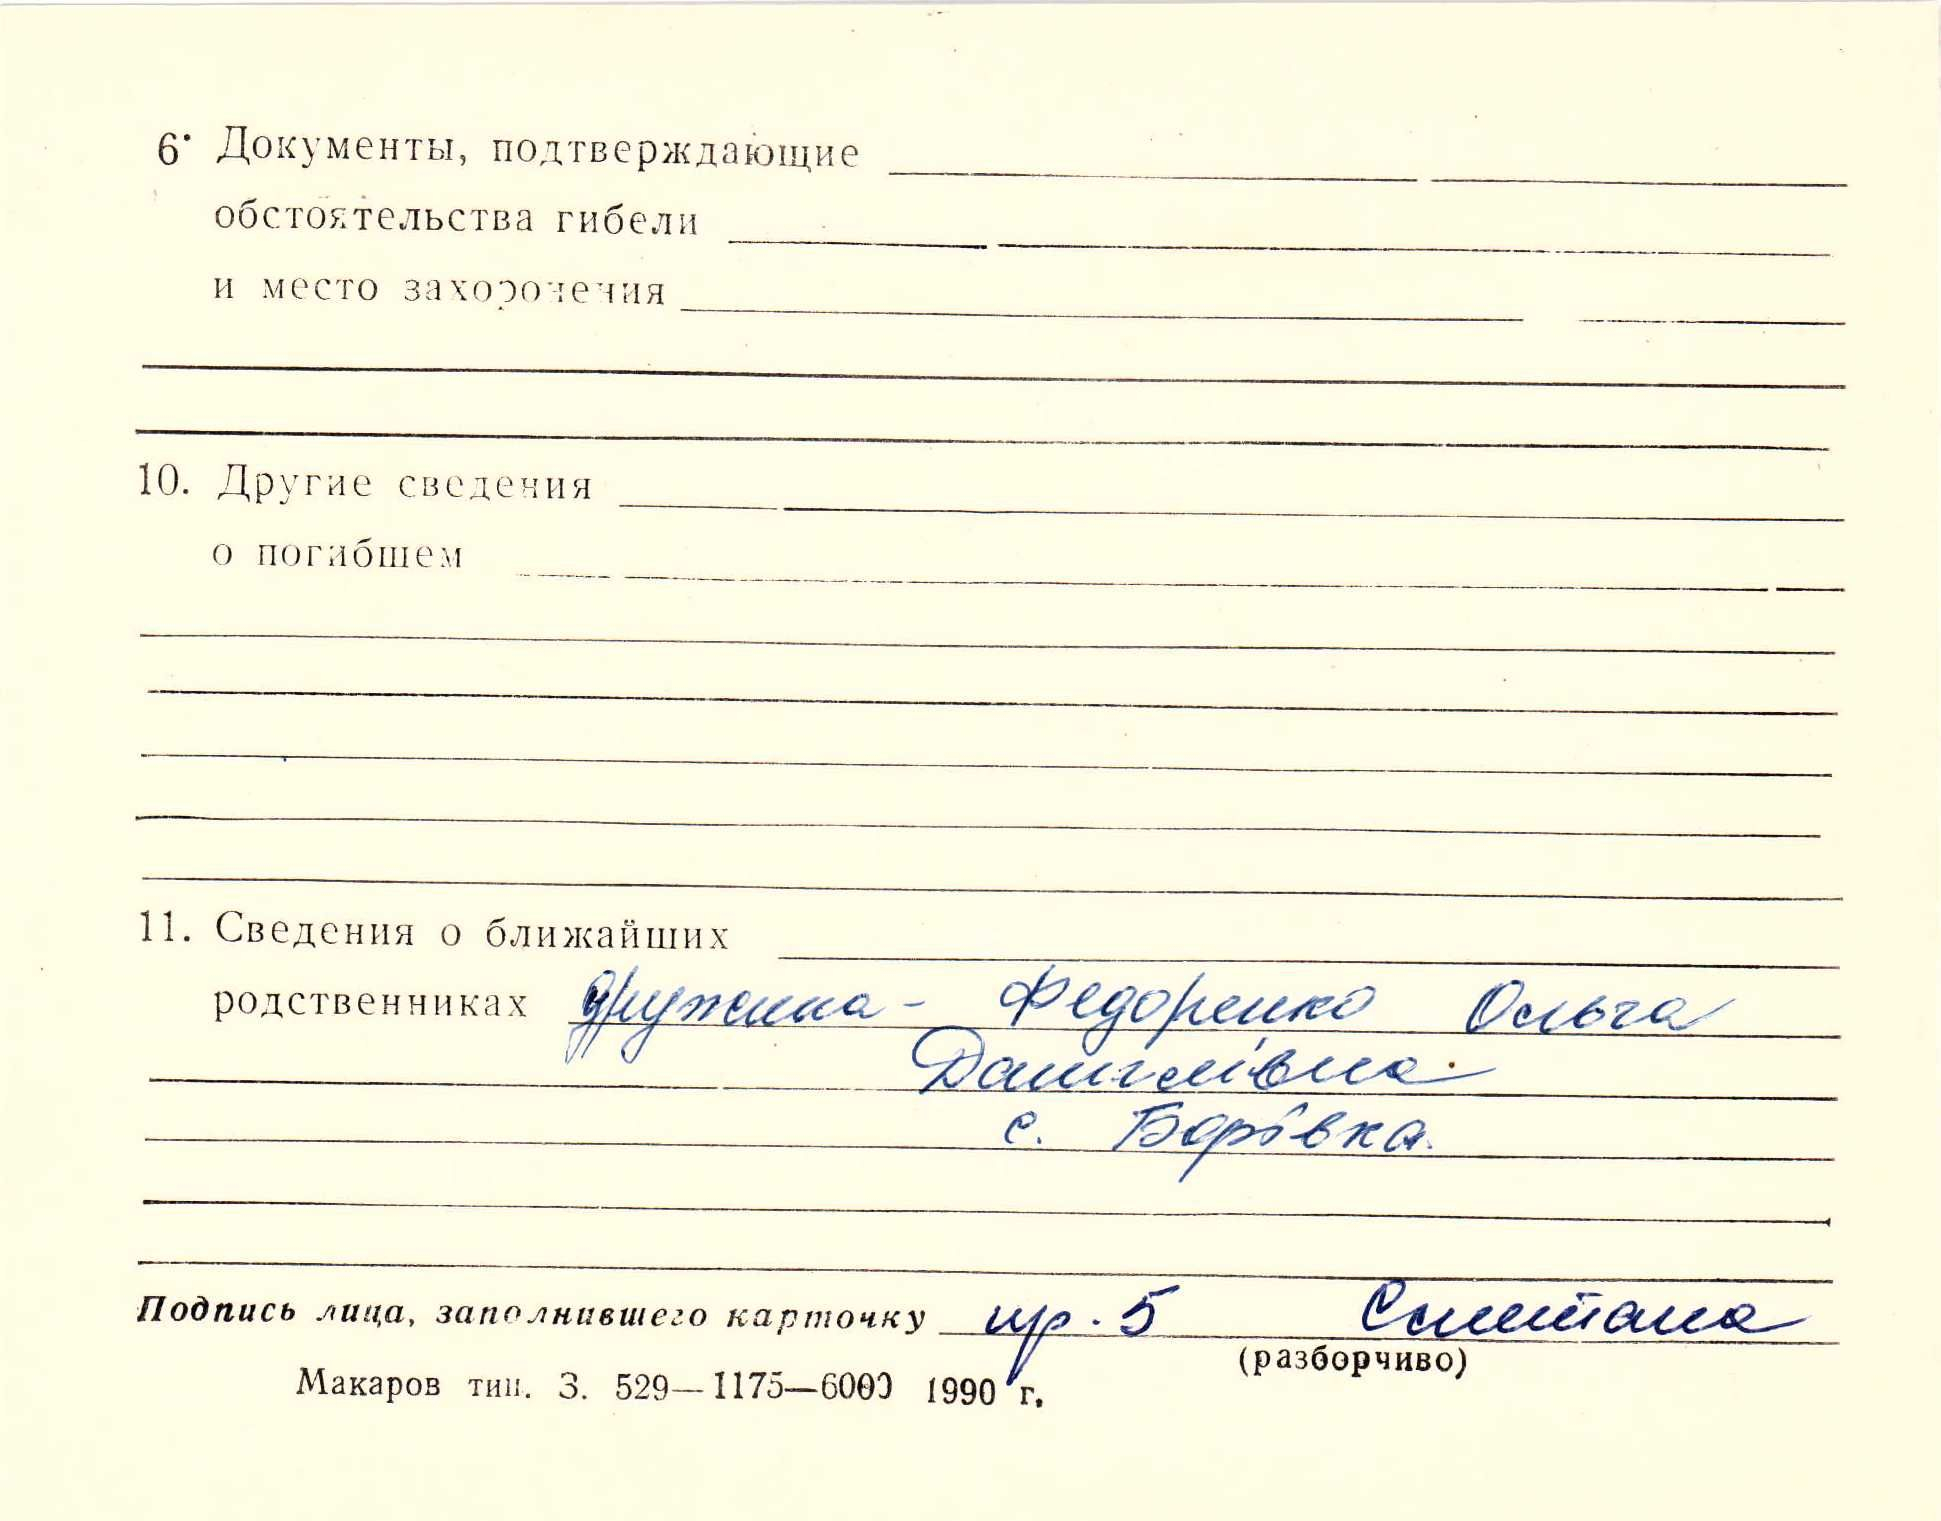 6. Документы, подтверждающие
обстоятельства гибели
и место захоронения
10. Другие сведения
о погибшем
11. Сведения о ближайших
родственниках дружина - Федоренко Ольга
Данилівна
с. Борівка.
Подпись лица, заполнившего карточку пр. 5 Сметана
(разборчиво)
Макаров тип. З. 529—1175—6000 1990 г.